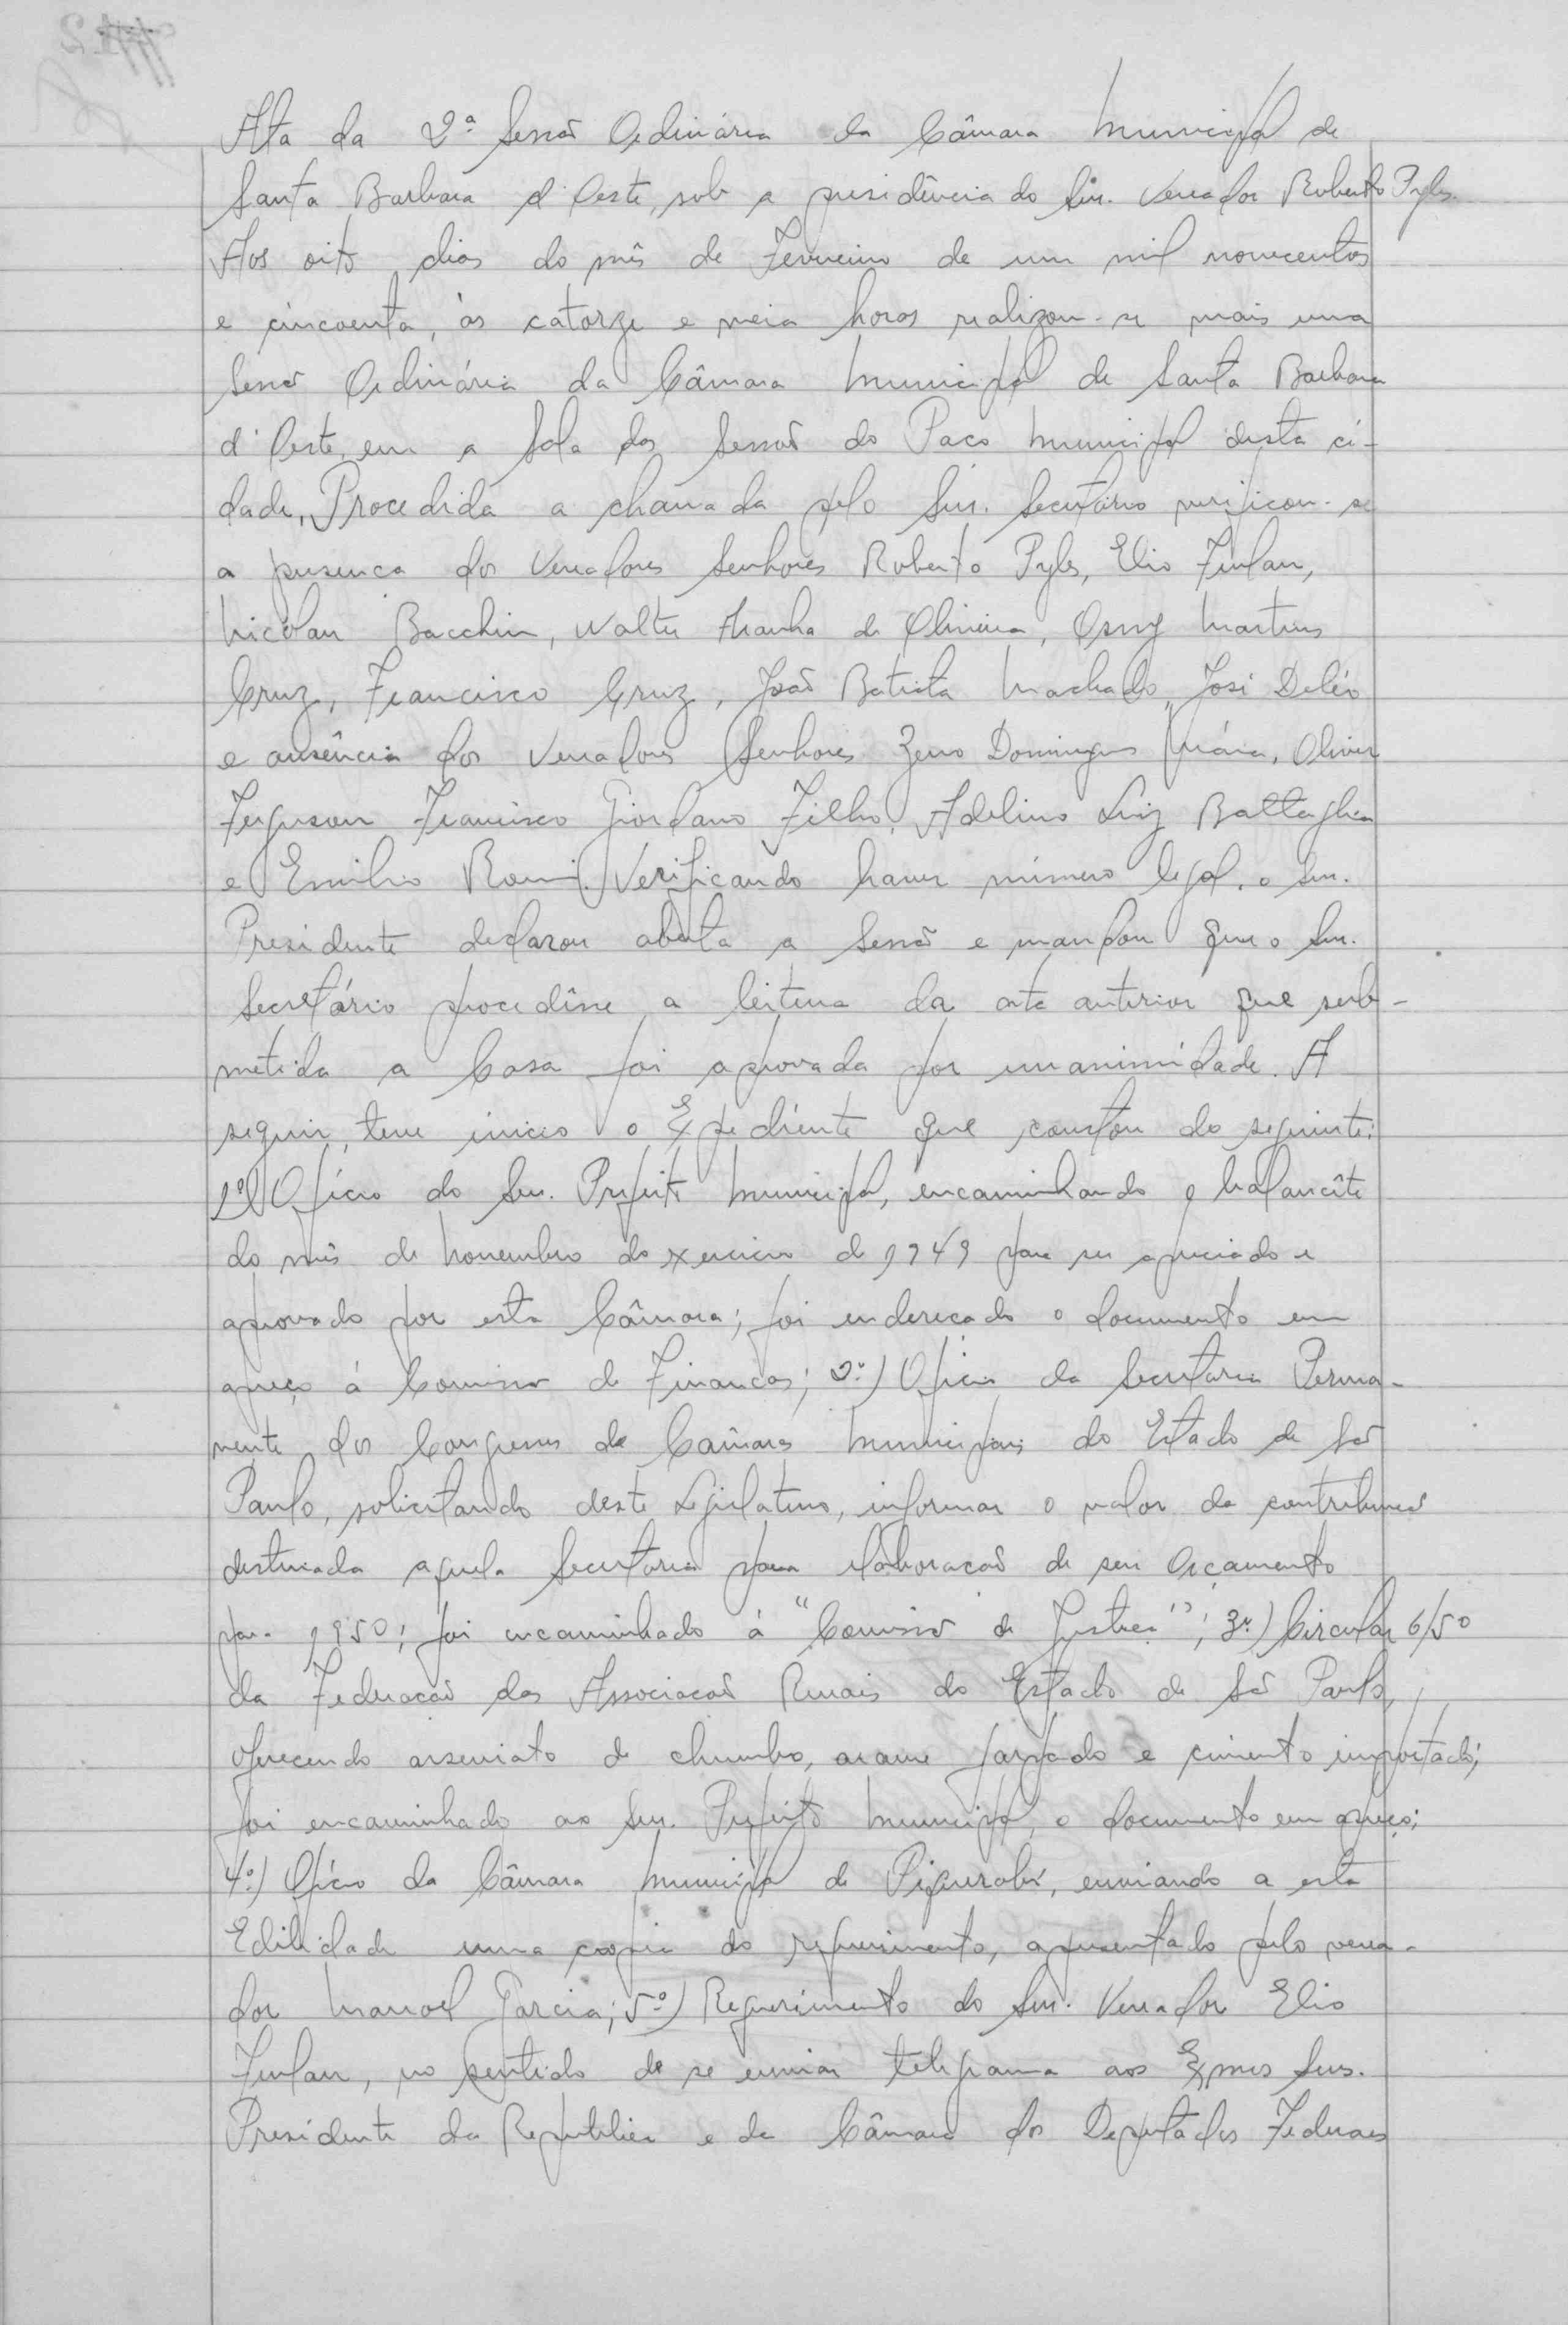 Ata da 2ª Sessão Ordinária da Câmara Municipal de
Santa Barbara d'Oeste, sob a presidência do Snr. Vereador Roberto Pyles.
Aos oito dias do mês de Fevereiro de um mil novecentos
e cincoenta, às catorze e meia horas realizou-se mais uma
Sessão Ordinária da Câmara Municipal de Santa Barbara
d'Oeste, em a Sala das Sessões do Paço Municipal desta ci-
dade. Procedida a chamada pelo Snr. Secretário verificou-se
a presença dos Vereadores Senhores Roberto Pyles, Elio Furlan,
Nicolau Bacchin, Walter Aranha de Oliveira, Osny Martins
Cruz, Francisco Cruz, João Batista Machado, José Deléo
e ausência dos Vereadores Senhores Zeno Domingues Máia, Oliver
Ferguson Francisco Giordano Filho, Adelino Luiz Battaglia
e Emilio Romi. Verificando haver número legal, o Snr.
Presidente declarou aberta a Sessão e mandou que o Snr.
Secretário procedêsse a leitura da ata anterior que sub-
metida a Casa foi aprovada por unanimidade. A
seguir, teve inicio o Expediente que constou do seguinte:
1º) Ofício do Snr. Prefeito Municipal, encaminhando o balancête
do mês de Novembro do exercicio de 1949 para ser apreciado e
aprovado por esta Câmara; foi endereçado o documento em
apreço á Comissão de Finanças; 2º.) Oficio da Secretaria Perma-
nente dos Congresos de Câmaras Municipais do Estado de São
Paulo, solicitando deste Legislativo, informar o valor da contribuição
destinada aquela Secretaria para elaboração de seu Orçamento
para 1950; foi encaminhado á "Comissão de Justiça"; 3º.) Circular 6/50
da Federação das Associação Rurais do Estado de São Paulo,
oferecendo arseniato de chumbo, arame farpado e cimento importado;
foi encaminhado ao Snr. Prefeito Municipal, o documento em apreço;
4º.) Ofício da Câmara Municipal de Piquerobí, enviando a esta
Edilidade uma copia do requerimento, apresentado pelo verea-
dor Manoel Garcia; 5º) Requerimento do Snr. Vereador Elio
Furlan, no sentido de se enviar telegrama aos Exmos Snrs.
Presidente da Republica e da Câmara dos Deputados Federaes